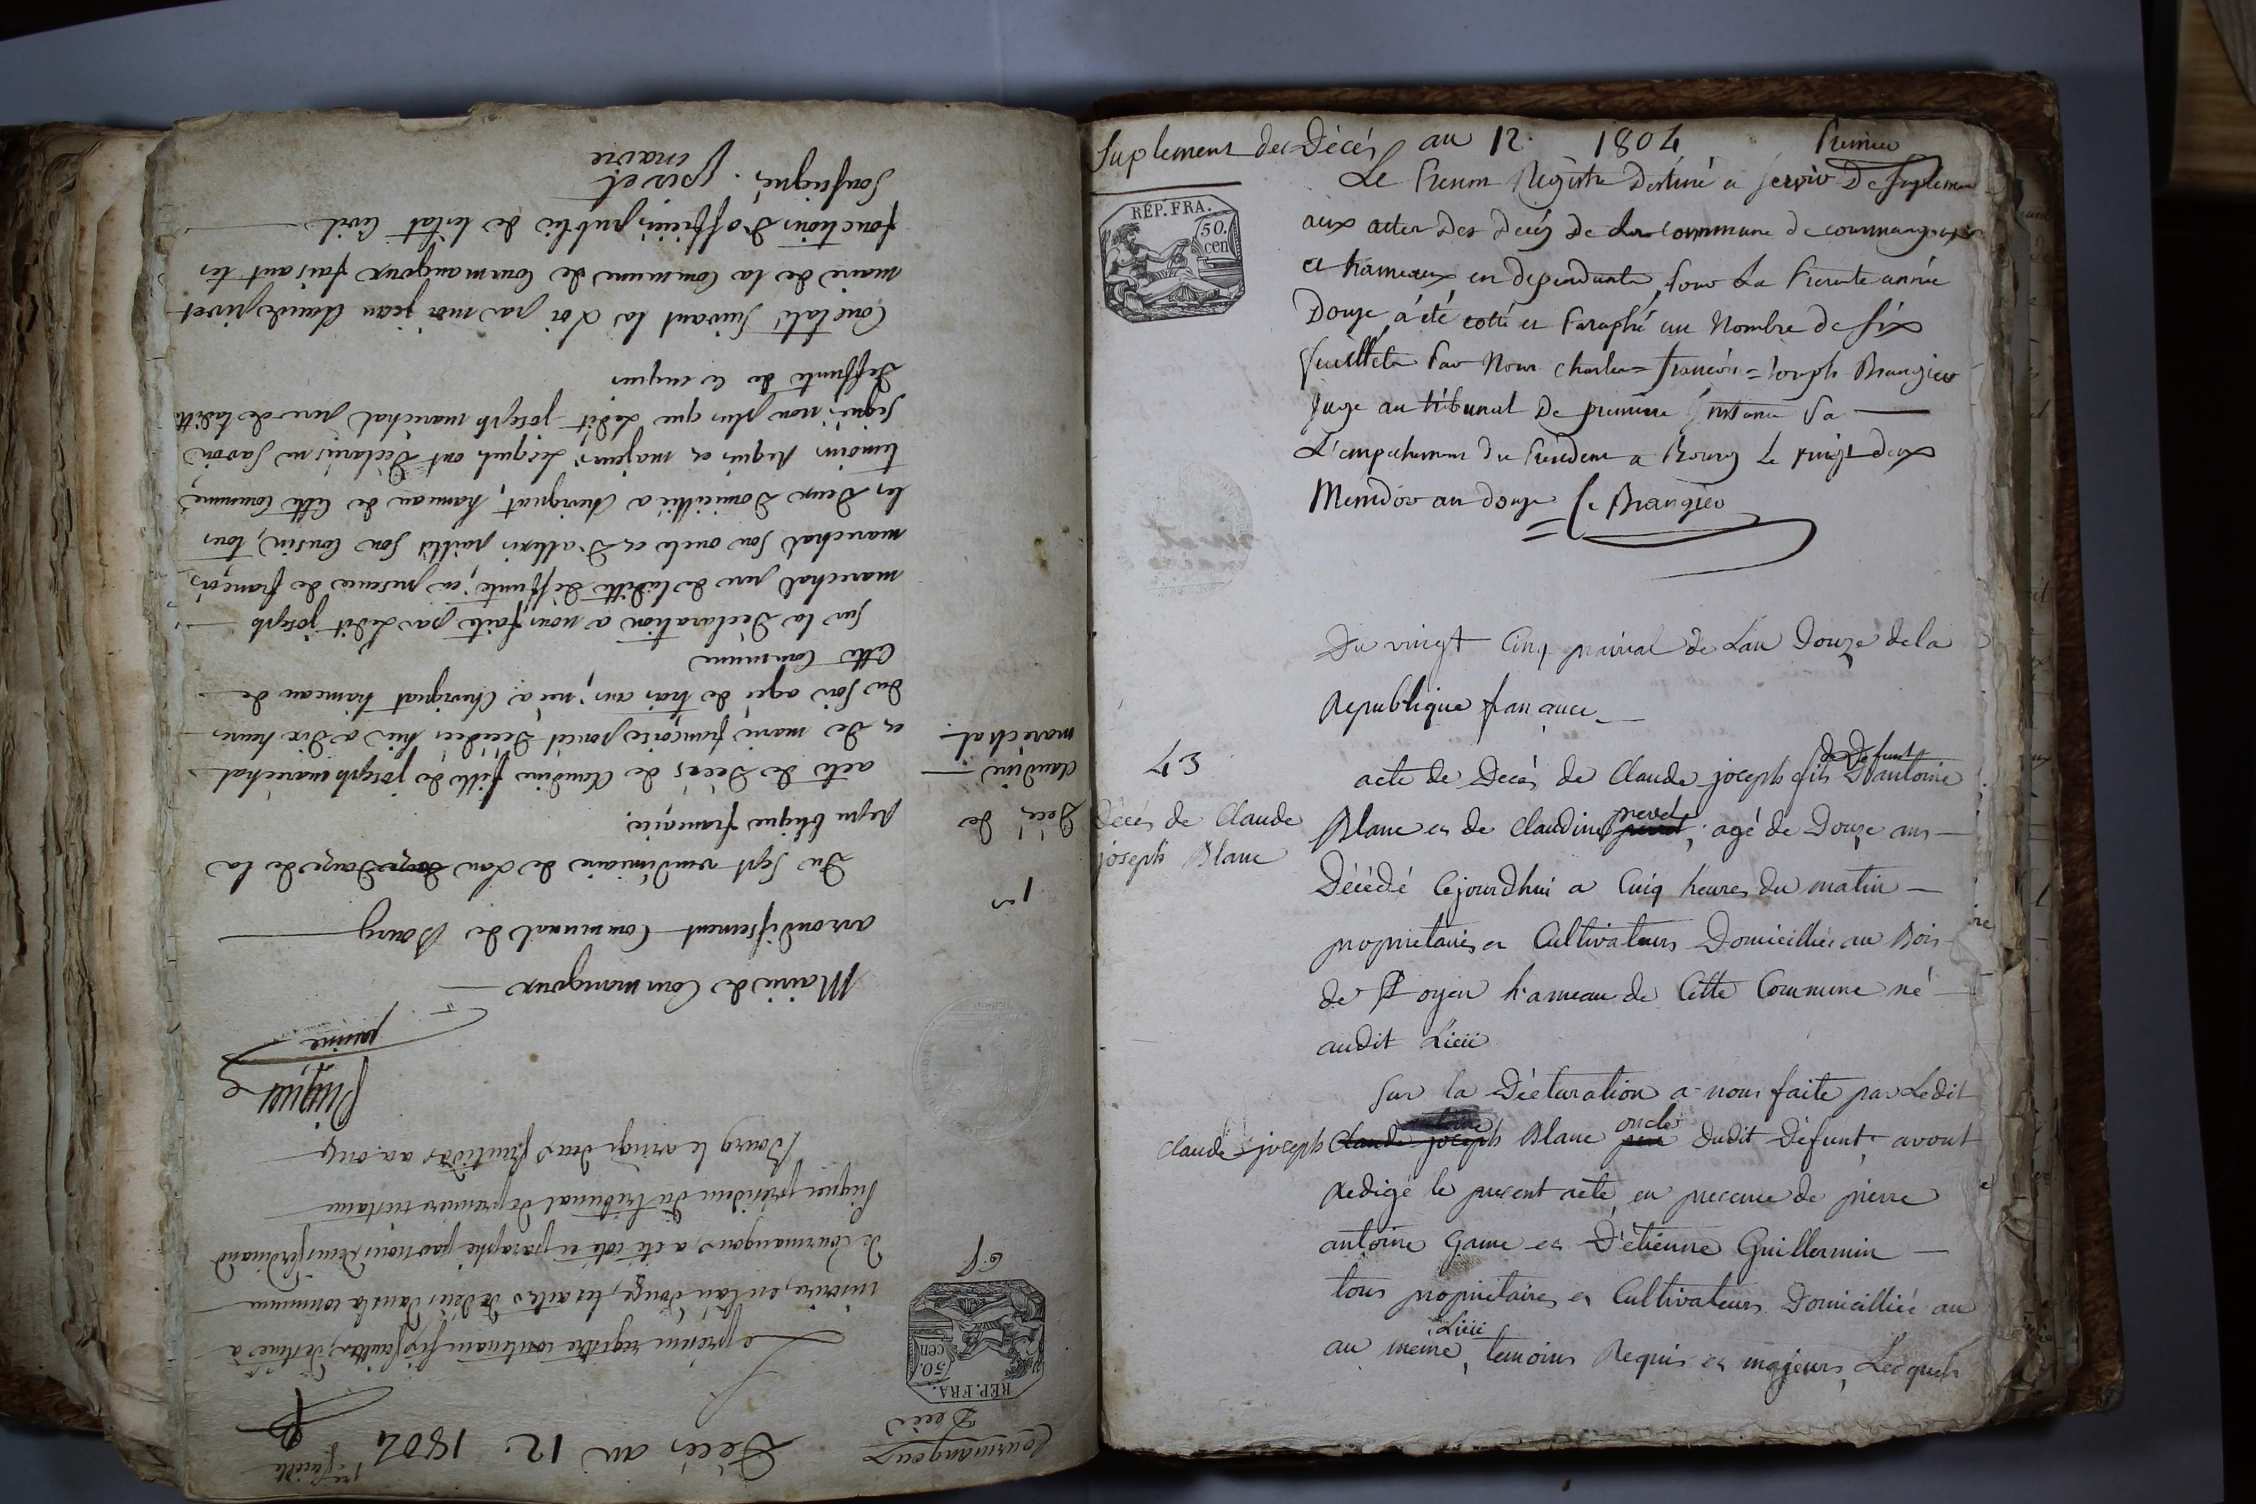 Courmangoux
Décès
Décès an 12. 1804
1er feuillet
RÉP. FRA.
50. cen
Le présent registre contenant six feuillets, destiné à
inscrire, en l'an douze, les actes de décès dans la commune
de Courmangoux, a été coté et paraphé par nous Denis ferdinand
Piquet président du tribunal de première instance
Bourg le vingt deux fructidor an onze
Piquet
Mairie de Courmangoux
arrondissement Communal de Bourg
1er
Du sept vendémiaire de L'an douze de la
republique francaise.
Décé de
claudine
maréchal
acte de Décés de Claudine fille de joseph maréchal
et de marie françoise poncet Décédée hier a dix heures
du soir agée de trois ans, née a Chevignat hameau de
Cette Commune
sur la Déclaration a nous faite par Ledit joseph
maréchal pere de laditte deffunte, en présence de françois
maréchal son oncle et D'alexis paillet son Cousin, tous
les Deux Domiciliés a Chevignat, hameau de Cette Commune,
temoins Requis et majeurs, Lesquels ont Déclarés ne savoir
signer non plus que Ledit joseph maréchal pere de laditte
deffunte de ce enquis
Constaté suivant la Loi par moi jean Claude pivet
maire de la Commune de Courmangoux faisant les
fonctions D'officier public de L'etat Civil
soussigné. pivet
maire
Suplement des Décés an 12. 1804 Premier
RÉP. FRA.
50. cen
Le Present Régistre Destiné a servir De suplement
aux actes Des Decès De la Commune de courmangoux
et hameaux en dependants, pour La Presente année
Douze, à été cotté et Paraphé au Nombre de six
feuillets Par Nous Charles=François=Joseph Brangier
Juge au tribunal De premiere Instance Pa
L'empechement du President a Bourg Le vingt deux
Messidor an douze Brangier
Du vingt Cinq prairial de L'an Douze de la
Republique françaice
43
Décés de Claude
joseph Blanc
acte de Decés de Claude joseph fils de Defunt D'antoine
Blanc et de Claudine pevet, agé de Douze ans
Décédé Cejourdhui a Cinq heures du matin
proprietaires et Cultivateurs Domicilliés au Bois
de St oyen hameau de Cette Commune né
audit Lieu
sur la Déclaration a nous faite par Ledit
Claude joseph Claude joseph Blanc oncle dudit Defunt, avont
Redigé le present acte, en presence de pierre
antoine Game et D'étienne Guillermin
tous proprietaires et Cultivateurs Domicilliés au
au meme Lieu, temoins Requis et majeurs, Lesquels